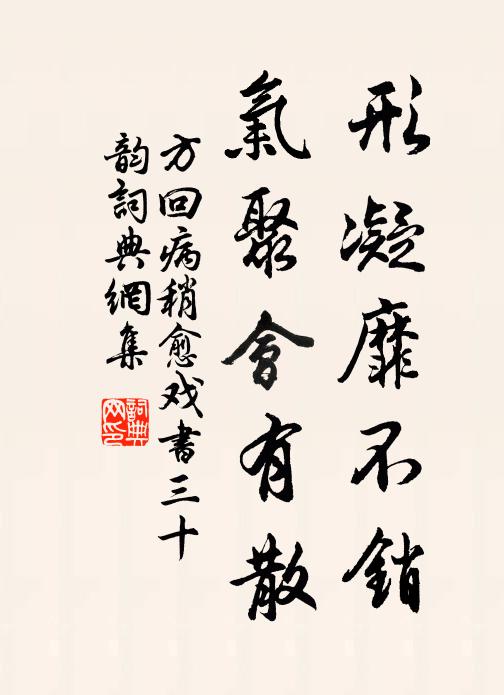 形凝靡不銷
氣聚會有散
方回病稍愈戏書三十
韵詞典網集
詞典網印